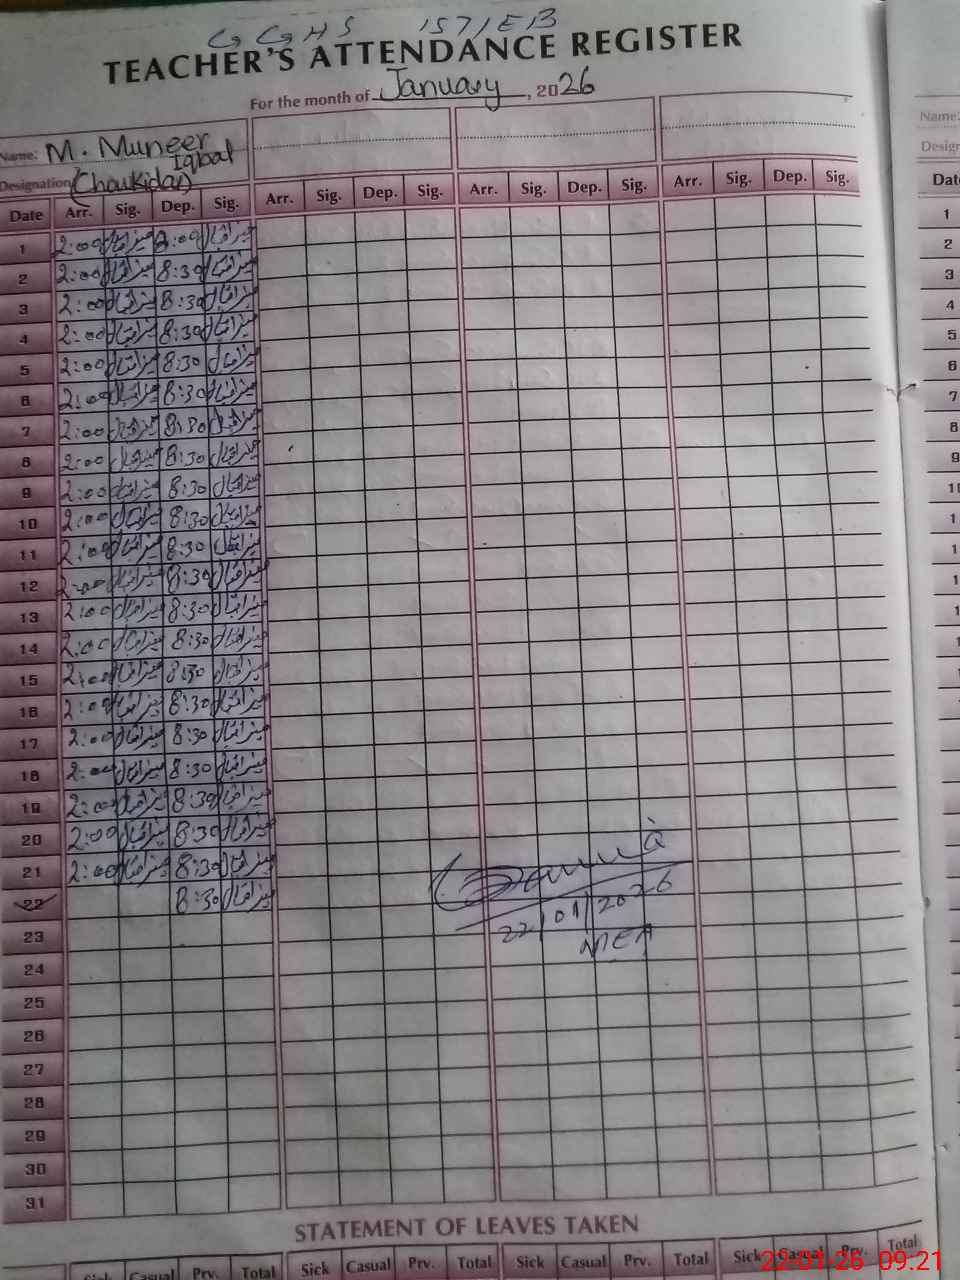 GGHS 157/EB
TEACHER'S ATTENDANCE REGISTER
For the month of January, 2026
Name: M. Muneer Iqbal
Designation (Chowkidar)
Date Arr. Sig. Dep. Sig. Arr. Sig. Dep. Sig. Arr. Sig. Dep. Sig. Arr. Sig. Dep. Sig.
1 2:00 منیر اقبال 8:00 منیر اقبال
2 2:00 منیر اقبال 8:30 منیر اقبال
3 2:00 منیر اقبال 8:30 منیر اقبال
4 2:00 منیر اقبال 8:30 منیر اقبال
5 2:00 منیر اقبال 8:30 منیر اقبال
6 2:00 منیر اقبال 8:30 منیر اقبال
7 2:00 منیر اقبال 8:30 منیر اقبال
8 2:00 منیر اقبال 8:30 منیر اقبال
9 2:00 منیر اقبال 8:30 منیر اقبال
10 2:00 منیر اقبال 8:30 منیر اقبال
11 2:00 منیر اقبال 8:30 منیر اقبال
12 2:00 منیر اقبال 8:30 منیر اقبال
13 2:00 منیر اقبال 8:30 منیر اقبال
14 2:00 منیر اقبال 8:30 منیر اقبال
15 2:00 منیر اقبال 8:30 منیر اقبال
16 2:00 منیر اقبال 8:30 منیر اقبال
17 2:00 منیر اقبال 8:30 منیر اقبال
18 2:00 منیر اقبال 8:30 منیر اقبال
19 2:00 منیر اقبال 8:30 منیر اقبال
20 2:00 منیر اقبال 8:30 منیر اقبال
21 2:00 منیر اقبال 8:30 منیر اقبال
22 8:30 منیر اقبال
22/01/2026
23 MEA
24
25
26
27
28
29
30
31
STATEMENT OF LEAVES TAKEN
Sick Casual Prv. Total Sick Casual Prv. Total Sick Casual Prv. Total Sick Casual Prv. Total
22-01-26 09:21
Name:
Design
Dat
1
2
3
4
5
6
7
8
9